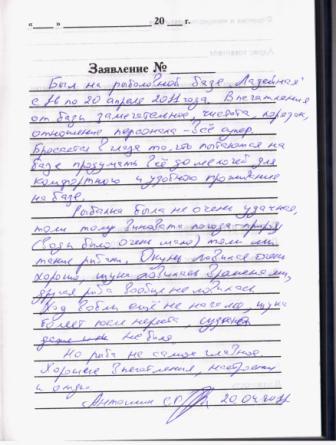 « » 20 г.
Заявление №
Был на рыболовной базе "Ладейная"
с 16 по 20 апреля 2011 года. Впечатления
от базы замечательное, чистота, порядок,
отношение персонала – всё супер.
Бросается в глаза то, что пытаются на
базе продумать всё до мелочей для
комфортного и удобного проживания
на базе.
Рыбалка была не очень удачная,
толи тому виновата погода-природа
(воды было очень мало) толи мы
такие рыбаки. Окунь ловился очень
хорошо, щука ловилась временами,
другая рыба вообще не ловилась
Ход воблы ещё не начался, щука
болеет после нереста, судака
даже и не было.
Но рыба не самое главное.
Хорошие впечатления, настроение
и отдых
Антошин С.Г. 20.04.2011